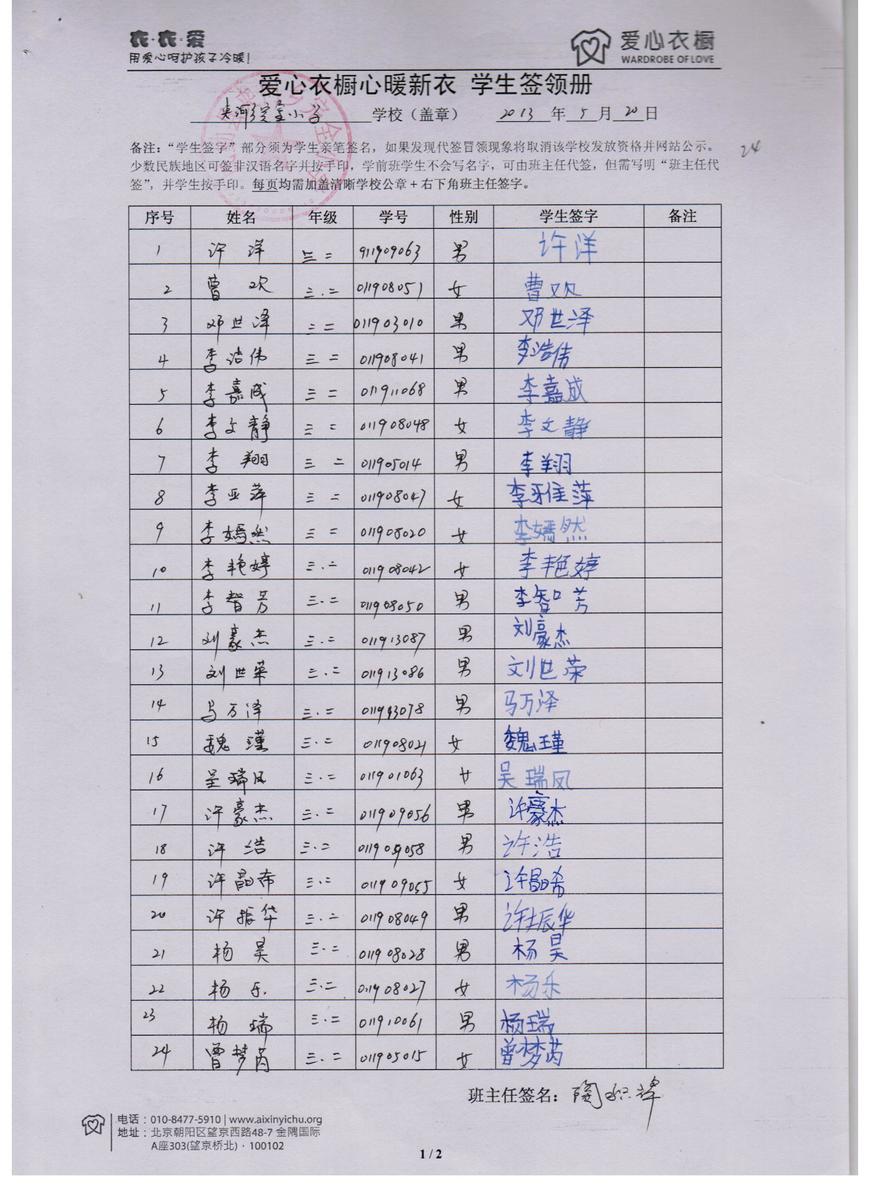 衣·衣·爱
用爱心呵护孩子冷暖!
爱心衣橱
WARDROBE OF LOVE
爱心衣橱心暖新衣 学生签领册
小学 学校（盖章） 2013 年 5 月 20 日
24
备注：“学生签字”部分须为学生亲笔签名，如果发现代签冒领现象将取消该学校发放资格并网站公示。
少数民族地区可签非汉语名字并按手印，学前班学生不会写名字，可由班主任代签，但需写明“班主任代
签”，并学生按手印。每页均需加盖清晰学校公章+右下角班主任签字。
序号 姓名 年级 学号 性别 学生签字 备注
1 许洋 三二 911909063 男 许洋
2 曹欢 三.二 011908051 女 曹欢
3 邓世泽 三二 011903010 男 邓世泽
4 李浩伟 三二 011908041 男 李浩伟
5 李嘉成 三二 011911068 男 李嘉成
6 李文静 三二 011908048 女 李文静
7 李翔 三二 011905014 男 李翔
8 李亚萍 三二 011908047 女 李雅萍
9 李嫣然 三二 011908020 女 李嫣然
10 李艳婷 三.二 011908042 女 李艳婷
11 李智芳 三.二 011908050 男 李智芳
12 刘豪杰 三.二 011913087 男 刘豪杰
13 刘世荣 三.二 011913086 男 刘世荣
14 马万泽 三.二 男 马万泽
15 魏瑾 三.二 011908021 女 魏瑾
16 吴瑞凤 三.二 011901063 女 吴瑞凤
17 许豪杰 三.二 011909056 男 许豪杰
18 许浩 三.二 011909058 男 许浩
19 许晶希 三.二 011909055 女 许晶希
20 许振华 三.二 011908049 男 许振华
21 杨昊 三.二 011908028 男 杨昊
22 杨乐 三.二 011908027 女 杨乐
23 杨瑞 三.二 011910061 男 杨瑞
24 曾梦芮 三.二 011905015 女 曾梦芮
班主任签名：陶
电话：010-8477-5910 | www.aixinyichu.org
地址：北京朝阳区望京西路48-7 金隅国际
A座303(望京桥北)·100102
1 / 2